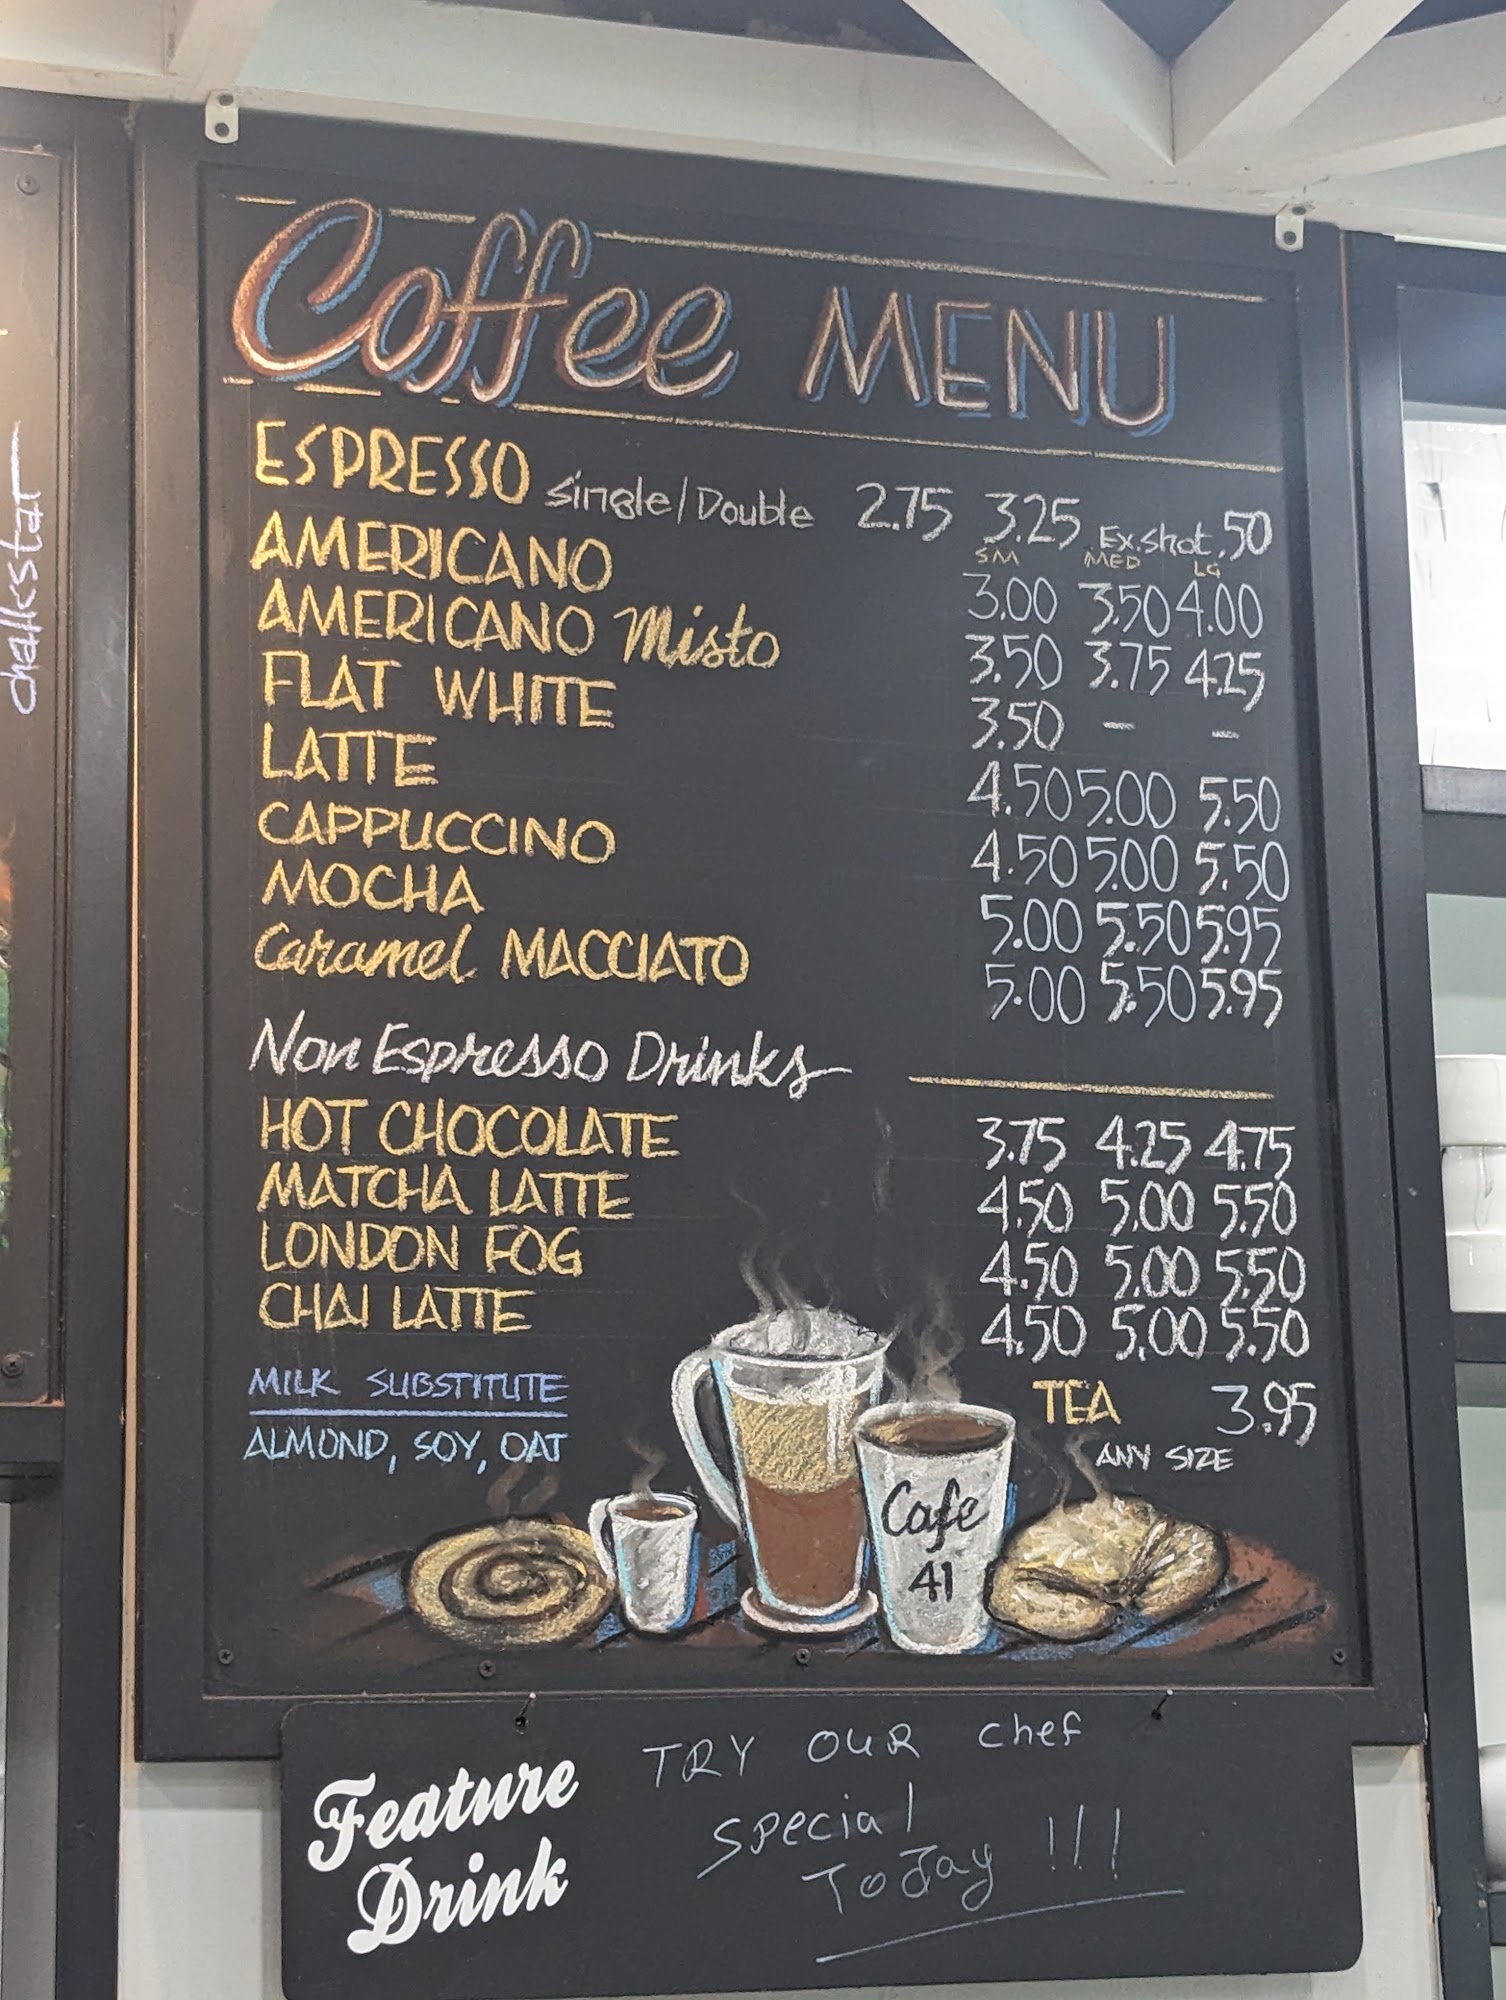 Coffee MENU
ESPRESSO Single/Double 2.75 3.25 Ex.shot .50
SM MED LG
AMERICANO 3.00 3.50 4.00
AMERICANO Misto 3.50 3.75 4.25
FLAT WHITE 3.50 - -
LATTE 4.50 5.00 5.50
CAPPUCCINO 4.50 5.00 5.50
MOCHA 5.00 5.50 5.95
Caramel MACCIATO 5.00 5.50 5.95
Non Espresso Drinks
HOT CHOCOLATE 3.75 4.25 4.75
MATCHA LATTE 4.50 5.00 5.50
LONDON FOG 4.50 5.00 5.50
CHAI LATTE 4.50 5.00 5.50
MILK SUBSTITUTE
ALMOND, SOY, OAT
TEA 3.95
ANY SIZE
Cafe
41
Feature
Drink
TRY OUR chef
special
Today !!!
chalkstar